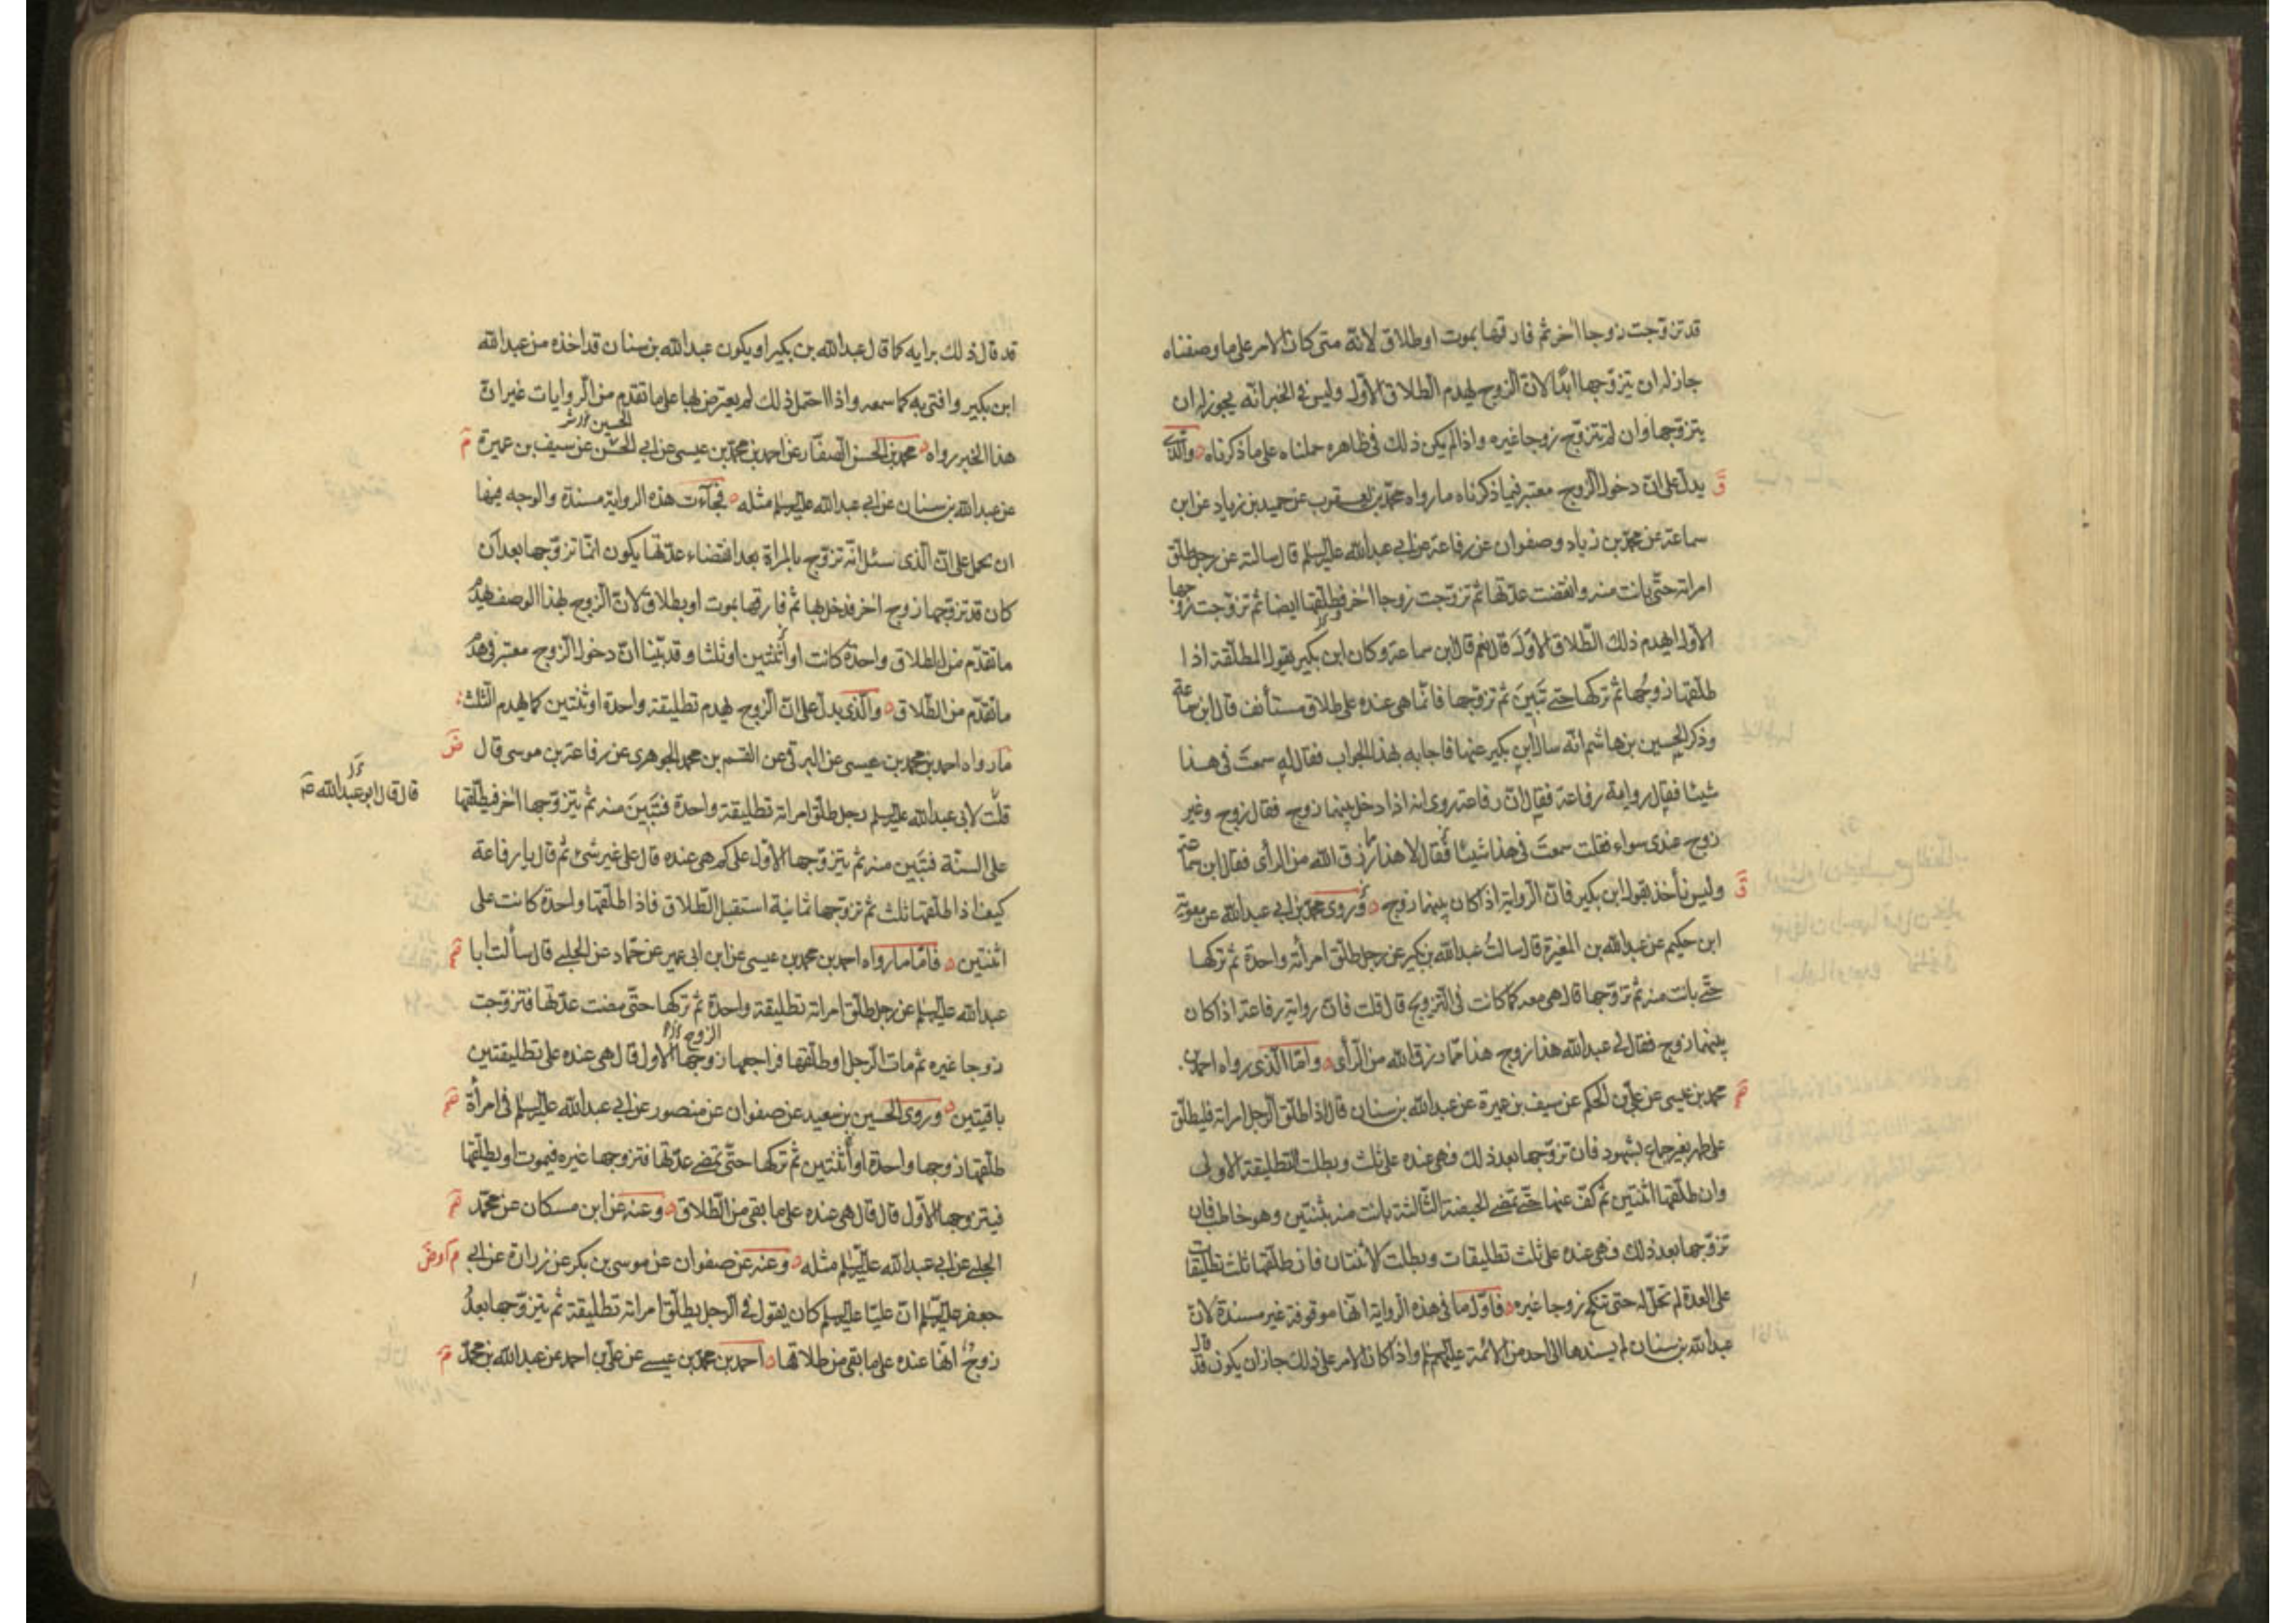 قد تزوّجت زوجا اخر ثم فارقها بموت او طلاق لانّه متى كان الامر على ما وصفناه
جاز له ان يتزوّجها ابدًا لانّ الزوج يهدم الطلاق الاول وليس فى الخبر انّه يجوز له ان
يتزوّجها وان لم تتزوّج زوجا غيره واذا لم يكن ذلك فى ظاهره حملناه على ما ذكرناه والّذى
يدلّ على انّ دخول الزوج معتبر فيما ذكرناه ما رواه محمّد بن يعقوب عن حميد بن زياد عن ابن
سماعة عن محمّد بن زياد وصفوان عن رفاعة عن ابى عبد الله عليه السلم قال سالته عن رجل طلّق
امراته حتّى بانت منه وانقضت عدّتها ثم تزوّجت زوجا اخر فطلّقها ايضا ثم تزوّجت زوجها
الاول ايهدم ذلك الطّلاق الاوّل قال نعم قال ابن سماعة وكان ابن بكير يقول المطلّقة اذا
طلّقها زوجها ثم تركها حتى تبين ثم تزوّجها فانّما هى عنده على طلاق مستأنف قال ابن سماعة
وذكر الحسين بن هاشم انّه سال ابن بكير عنها فاجابه بهذا الجواب فقال له سمعت فى هذا
شيئا فقال رواية رفاعة فقال انّ رفاعة روى انه اذا دخل بينهما زوج فقال زوج وغير
زوج عندى سواء فقلت سمعت فى هذا شيئا فقال لا هذا مما رزق الله من الرأى فقال ابن سماعة
وليس نأخذ بقول ابن بكير فانّ الرواية اذا كان بينهما زوج وروى محمّد بن ابى عبد الله عن معوية
ابن حكيم عن عبد الله بن المغيرة قال سالت عبد الله بن بكير عن رجل طلّق امرأته واحدة ثم تركها
حتّى بانت منه ثم تزوّجها قال هى معه كما كانت فى التزويج قال قلت فانّ رواية رفاعة اذا كان
بينهما زوج فقال لى عبد الله هذا زوج هذا ممّا رزق الله من الرأى وامّا الّذى رواه احمد بن
محمد بن عيسى عن على بن الحكم عن سيف بن عميرة عن عبد الله بن سنان قال اذا طلّق الرجل امراته فليطلّق
على طهر بغير جماع بشهود فان تزوّجها بعد ذلك فهى عنده على ثلث وبطلت التطليقة الاولى
وان طلّقها اثنتين ثم كفّ عنها حتّى تمضى الحيضة الثّالثة بانت منه بثنتين وهو خاطب فان
تزوّجها بعد ذلك فهى عنده على ثلث تطليقات وبطلت الاثنتان فان طلّقها ثلث تطليقات
على العدة لم تحلّ له حتى تنكح زوجا غيره فاوّل ما فى هذه الرواية انّها موقوفة غير مسندة لانّ
عبد الله بن سنان لم يسندها الى احد من الائمة عليهم السلم واذا كان الامر على ذلك جاز ان يكون قد قال
قد قال ذلك برايه كما قال عبد الله بن بكير او يكون عبد الله بن سنان قد اخذه من عبد الله
ابن بكير وافتى به كما سمعه واذا احتمل ذلك لم يعترض بها على ما تقدم من الروايات غير انّ
الحسين
هذا الخبر رواه محمد بن الحسن الصفّار عن احمد بن محمّد بن عيسى عن ابى الحسن عن سيف بن عميرة
عن عبد الله بن سنان عن ابى عبد الله عليه السلم مثله فجاءت هذه الرواية مسندة والوجه فيها
ان نحمل على انّ الّذى سئل انّه تزوّج بالمراة بعد انقضاء عدّتها يكون انّما تزوّجها بعد ان
كان قد تزوّجها زوج اخر فدخل بها ثم فارقها بموت او بطلاق لانّ الزوج بهذا الوصف يهدم
ما تقدّم من الطلاق واحدة كانت او أثنتين او ثلثا وقد بيّنا انّ دخول الزوج معتبر فى هدم
ما تقدّم من الطّلاق والّذى يدلّ على انّ الزوج يهدم تطليقة واحدة او ثنتين كما يهدم الثّلث
ما رواه احمد بن محمد بن عيسى عن البرقى عن القسم بن محمد الجوهرى عن رفاعة بن موسى قال
قال قال ابو عبد الله عم
قلت لابى عبد الله عليه السلم رجل طلّق امراته تطليقة واحدة فتبين منه ثم يتزوّجها اخر فيطلّقها
على السنّة فتبين منه ثم يتزوّجها الاوّل على كم هى عنده قال على غير شئ ثم قال يا رفاعة
كيف اذا طلّقها ثلث ثم تزوّجها ثانية استقبل الطّلاق فاذا طلّقها واحدة كانت على
اثنتين فامّا ما رواه احمد بن محمد بن عيسى عن ابن ابى عمير عن حمّاد عن الحلبى قال سألت ابا
عبد الله عليه السلم عن رجل طلّق امراته تطليقة واحدة ثم تركها حتّى مضت عدّتها فتزوّجت
الزوج
زوجا غيره ثم مات الرجل او طلّقها فراجعها زوجها الاول قال هى عنده على تطليقتين
باقيتين وروى الحسين بن سعيد عن صفوان عن منصور عن ابى عبد الله عليه السلم فى امرأة
طلّقها زوجها واحدة او أثنتين ثم تركها حتّى تمضى عدّتها فتزوجها غيره فيموت او يطلّقها
فيتزوجها الاول قال قال هى عنده على ما بقى من الطّلاق وعنه عن ابن مسكان عن محمّد
الحلبى عن ابى عبد الله عليه السّلم مثله وعنه عن صفوان عن موسى بن بكر عن زرارة عن ابى
جعفر عليه السّلم انّ عليّا عليه السلم كان يقول فى الرجل يطلّق امراته تطليقة ثم يتزوّجها بعد
زوج انّها عنده على ما بقى من طلاقها احمد بن محمّد بن عيسى عن على بن احمد عن عبد الله بن محمّد